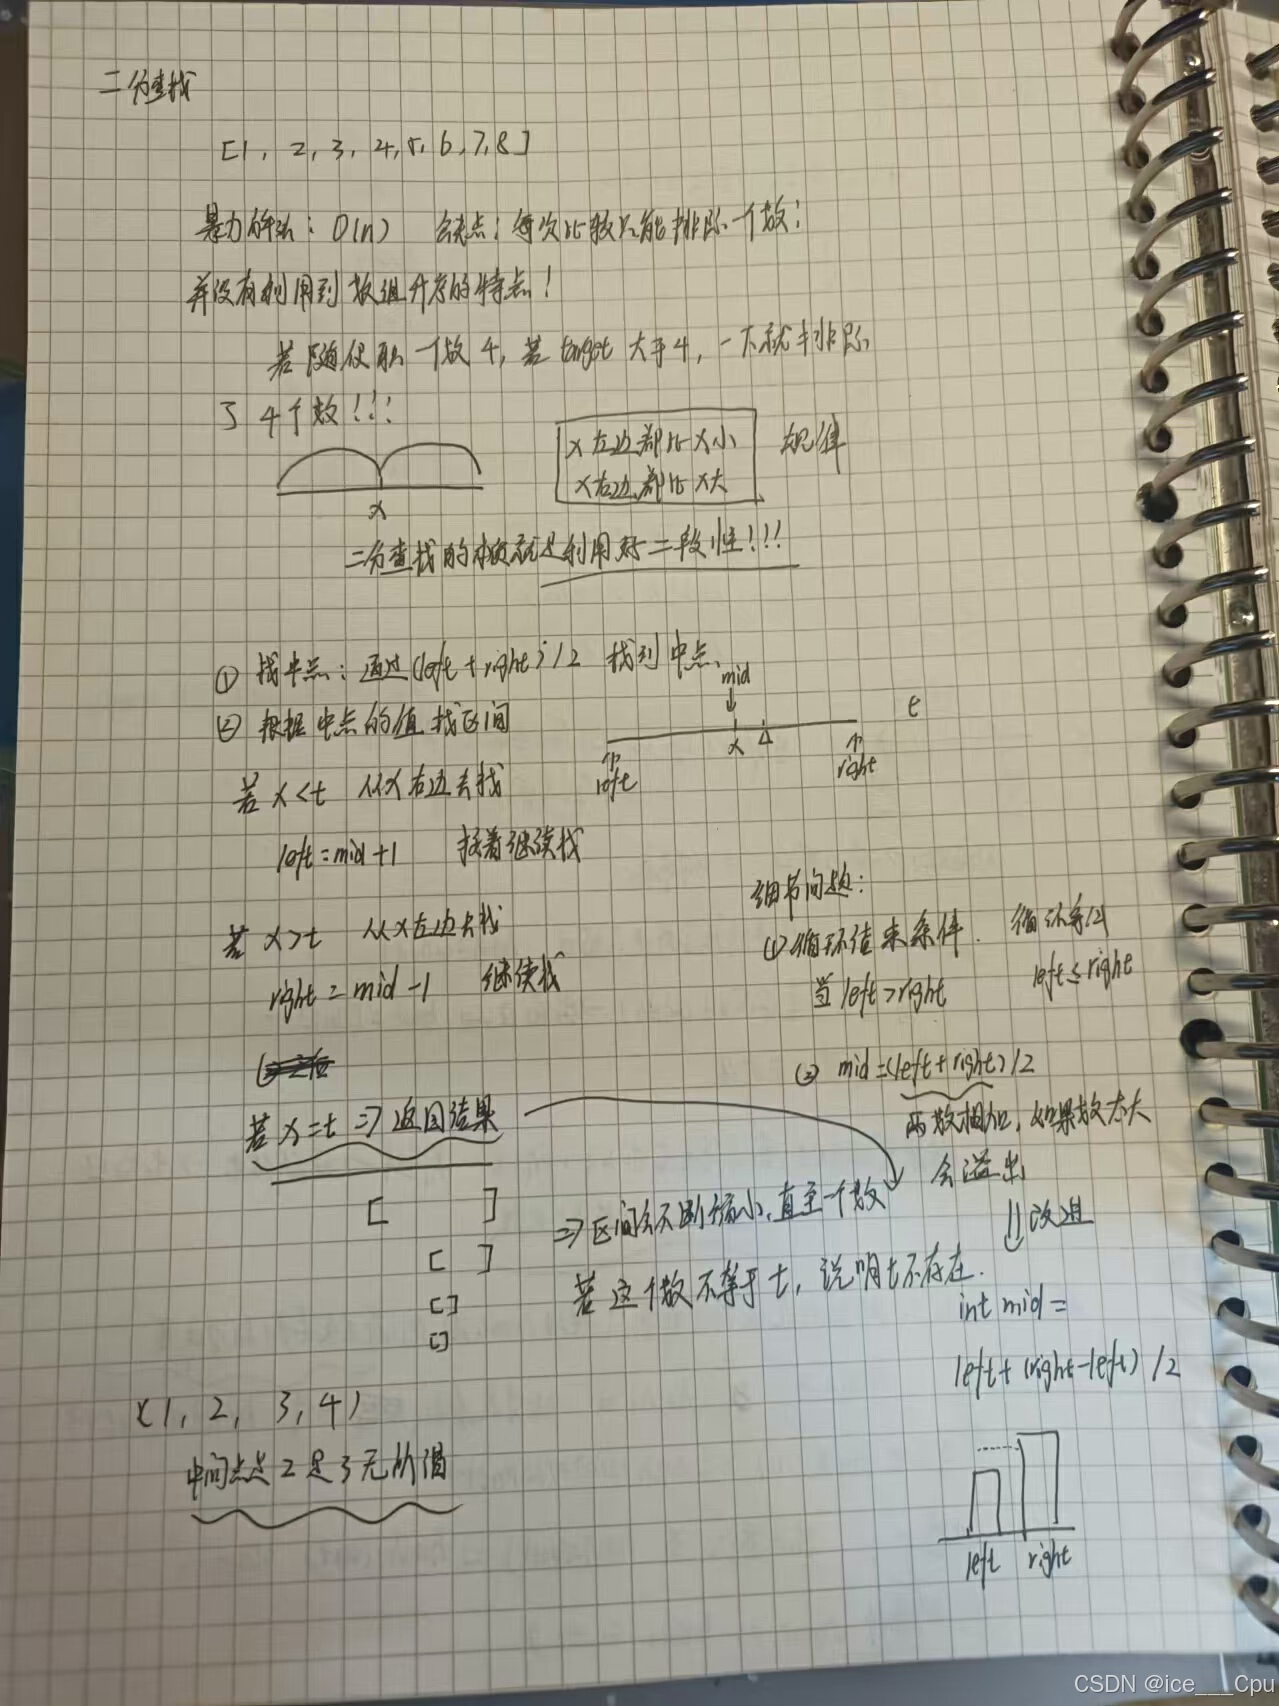 二分查找
[1, 2, 3, 4, 5, 6, 7, 8]
暴力解法: O(n) 缺点: 每次比较只能排除一个数;
并没有利用到数组升序的特点!
若随便取一个数4, 若target大于4, 一下就排除
了4个数!!!
x
x左边都比x小
x右边都比x大
规律
二分查找的本质就是利用好二段性!!!
① 找中点: 通过(left + right)/2 找到中点.
② 根据中点的值找区间
mid
x 4
t
left
right
若 x<t 从x右边去找
left = mid + 1 接着继续找
若 x>t 从x左边去找
right = mid - 1 继续找
若 x=t => 返回结果
[ ]
[ ]
[]
[]
=> 区间会不断缩小, 直至一个数
若这个数不等于t, 说明t不存在.
(1, 2, 3, 4)
中间点是2是3无所谓
细节问题:
① 循环结束条件.
当 left > right
循环条件
left ≤ right
② mid = (left + right)/2
两数相加, 如果数太大
会溢出
改进
int mid =
left + (right-left)/2
left right
CSDN @ice___Cpu